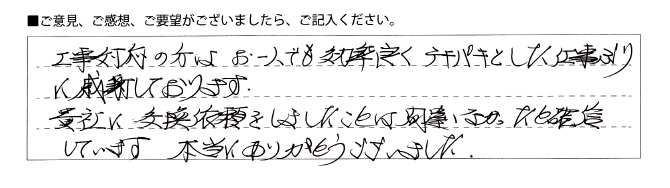 ■ご意見、ご感想、ご要望がございましたら、ご記入ください。
工事対応の方は お一人でも効率良くテキパキとした仕事ぶり
に感謝しております.
貴社に交換依頼をしましたことは間違いなかったと確信
しています 本当にありがとうございました.